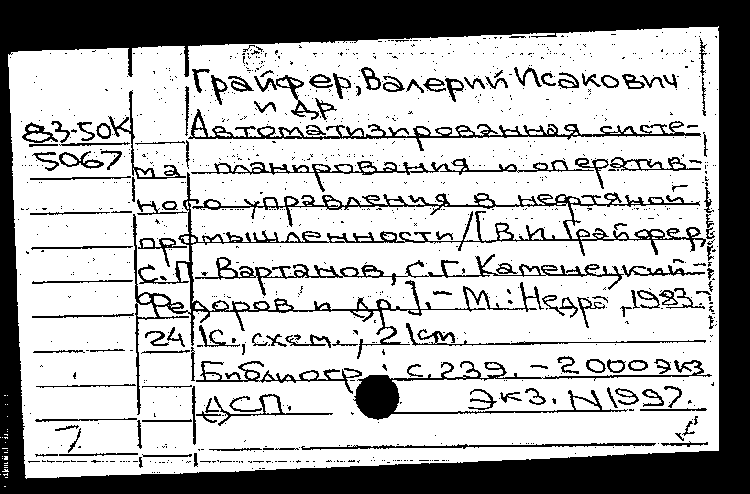 Грайфер, Валерий Исакович
и др
83-50К Автоматизированная систе-
5067 ма планирования и оператив-
ного управления в нефтяной
промышленности / [В.И. Грайфер,
С.П. Вартанов, С.Г. Каменецкий
Федоров и др.]. - М.: Недра, 1983.-
241с., схем.; 21cm.
Библиогр.: с.239. - 2000 экз
ДСП. Экз. N1997.
7